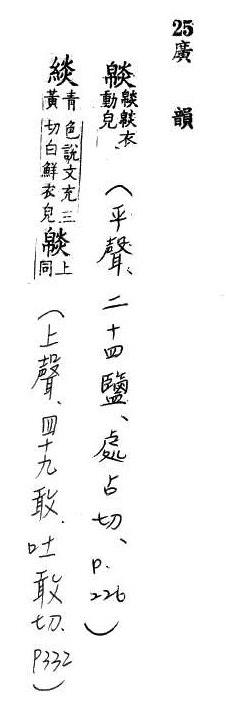 25廣韻
衣動皃(平聲、二十四鹽、處占切、P.226)
緂青黃色說文充三切白鮮衣皃上同(上聲、四十九敢、吐敢切、P332)